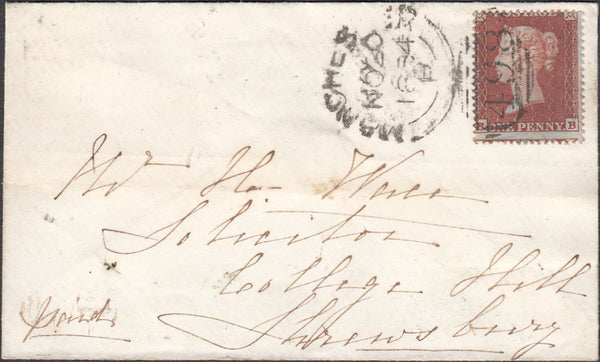 MANCHES
NO 20
1854
B
498
ONE PENNY
B
Mr. H. Wace
Solicitor
College Hill
Shrewsbury
paid